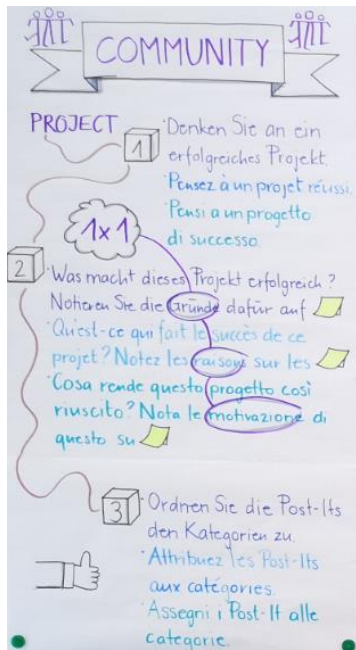 COMMUNITY
PROJECT
1
· Denken Sie an ein
erfolgreiches Projekt.
· Pensez à un projet réussi.
· Pensi a un progetto
di successo.
1x1
2
· Was macht dieses Projekt erfolgreich?
Notieren Sie die Gründe dafür auf
· Qu'est-ce qui fait le succès de ce
projet? Notez les raisons sur les
· Cosa rende questo progetto così
riuscito? Nota le motivazione di
questo su
3
· Ordnen Sie die Post-Its
den Kategorien zu.
· Attribuez les Post-Its
aux catégories.
· Assegni i Post-It alle
categorie.